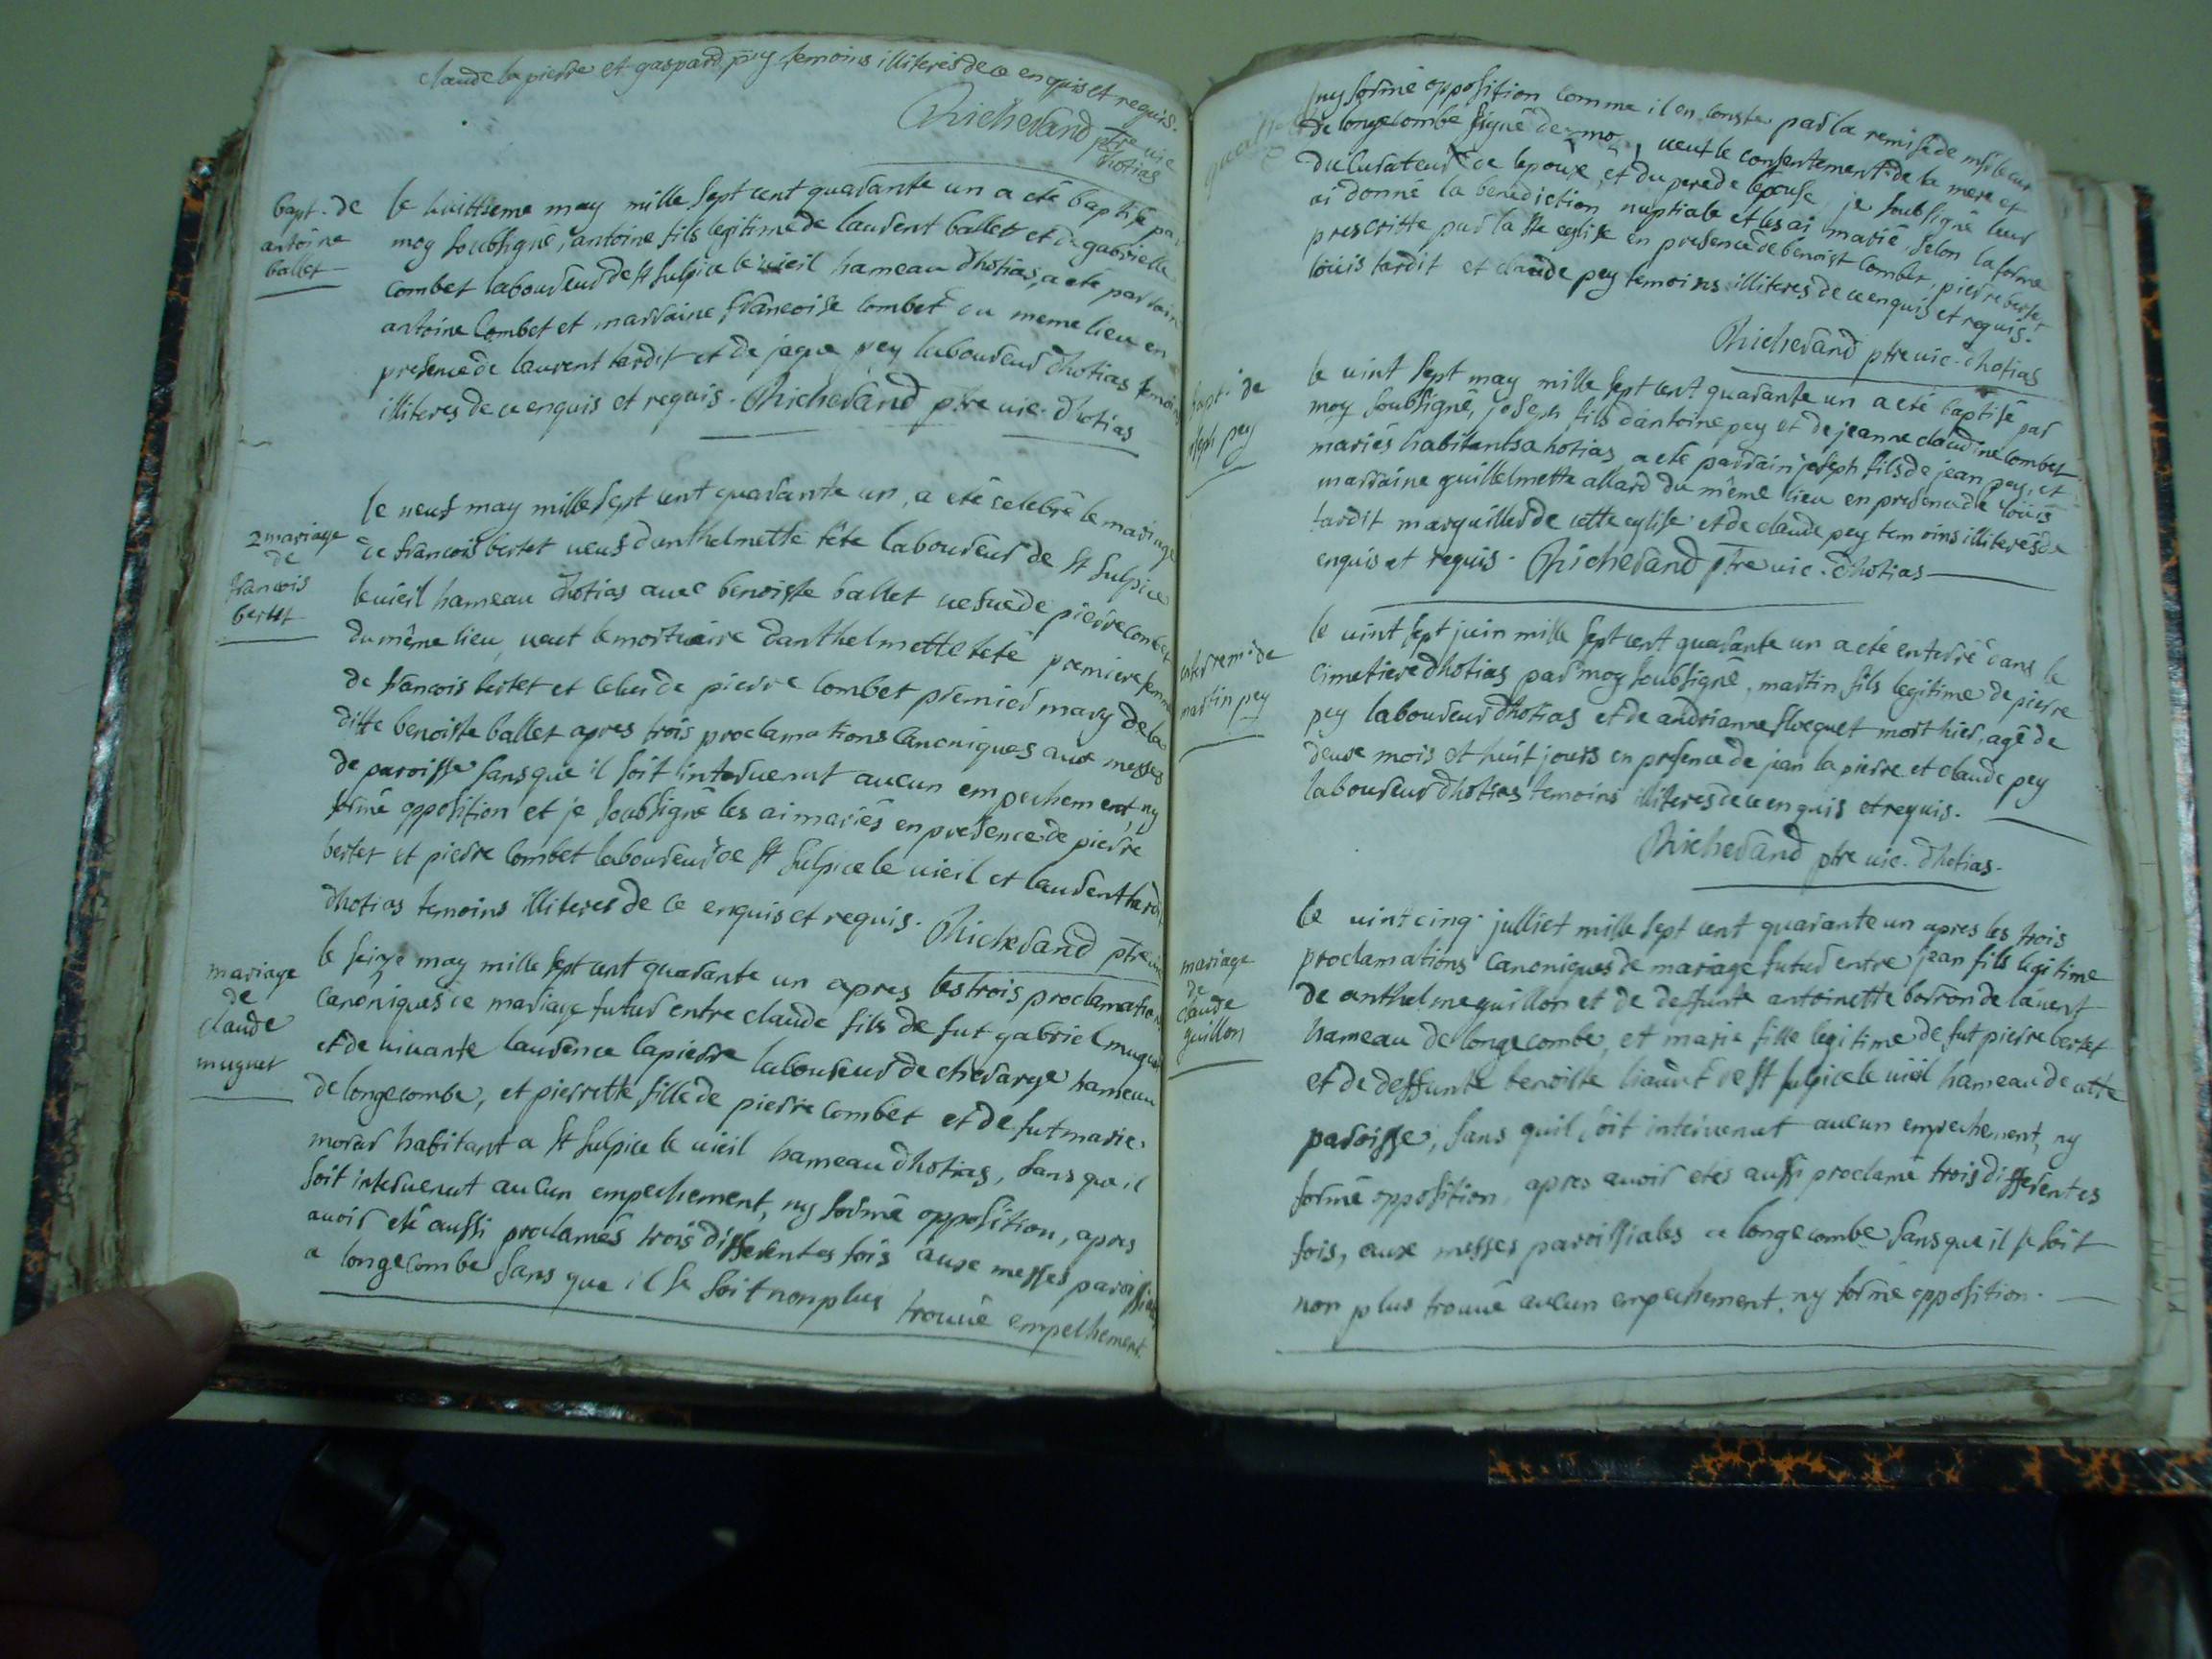 claude la pierre et gaspard pey temoins illiteres de ce enquis et requis.
Richerand ptre vic
dhotias
bapt. de
antoine
ballet
le huittieme may mille sept cent quarante un a eté baptisé par
moy soubsigné, antoine fils legitime de laurent ballet et de gabrielle
combet laboureur de st sulpice le vieil hameau dhotias, a eté parrain
antoine combet et marraine francoise combet du meme lieu en
presence de laurent tardit et de jaque pey laboureur dhotias temoins
illiteres de ce enquis et requis. Richerand ptre vic. dhotias
2 mariage
de
francois
bertet
le neuf may mille sept cent quarante un, a eté celebré le mariage
de francois bertet veuf danthelmette tête laboureur de st sulpice
le vieil hameau dhotias avec benoiste ballet vefue de pierre combet
du même lieu, veut le mortuaire danthelmette teté premiere femme
de francois bertet et celui de pierre combet premier mary de la
ditte benoiste ballet apres trois proclamations canoniques aux messes
de paroisse sans que il soit intervenut aucun empechement, ny
formé opposition et je soubsigné les ai mariés en presence de pierre
bertet et pierre combet laboureur de st sulpice le vieil et laurent tardit
dhotias temoins illiteres de ce enquis et requis. Richerand ptre vic
mariage
de
claude
muguet
le seize may mille sept cent quarante un apres les trois proclamations
canoniques de mariage futur entre claude fils de fut gabriel muguet
et de vivante laurence lapierre laboureur de cherarge hameau
de longecombe, et pierrette fille de pierre combet et de fut marie
morar habitant a st sulpice le vieil hameau dhotias, sans que il
soit intervenut aucun empechement, ny formé opposition, apres
avoir eté aussi proclamés trois differentes fois aux messes paroissiales
a longecombe sans que il se soit non plus trouué empechement.
ny formé opposition comme il en conste par la remise de
de longecombe signé veut le consentement de la mere et
du curateur de lepoux, et du pere de lepouse, je soubsigné leur
ai donné la benediction nuptiale et les ai marié selon la forme
prescritte par la ste eglise en presence de benoist combet, pierre bertet
louis tardit et claude pey temoins illiteres de ce enquis et requis.
Richerand ptre vic. dhotias
bapt. de
joseph pey
le vint sept may mille sept cent quarante un a eté baptisé par
moy soubsigné, joseph fils dantoine pey et de jeanne claudine combet
mariés habitants a hotias a eté parrain joseph fils de jean pey, et
marraine guillelmette allard du même lieu en presence de louis
tardit marguiller de cette eglise et de claude pey temoins illiterés de
enquis et requis. Richerand ptre vic. dhotias
enterrem. de
martin pey
le vint sept juin mille sept cent quarante un a eté enterré dans le
cimetiere dhotias par moy soubsigné, martin fils legitime de pierre
pey laboureur dhotias et de andrianne mort hier, agé de
deux mois et huit jours en presence de jean la pierre et claude pey
laboureur dhotias temoins illiteres de ce enquis et requis.
Richerand ptre vic. dhotias.
mariage
de
claude
guillon
le vint cinq julliet mille sept cent quarante un apres les trois
proclamations canoniques de mariage futur entre jean fils legitime
de anthelme guillon et de deffunte antoinette borron de lavent
hameau de longecombe, et marie fille legitime de fut pierre bertet
et de deffunte benoiste de st sulpice le vieil hameau de cette
paroisse, sans quil soit intervenut aucun empechement, ny
formé opposition, apres avoir etés aussi proclamé trois differentes
fois, aux messes paroissiales a longecombe sans que il se soit
non plus trouué aucun empechement, ny formé opposition.